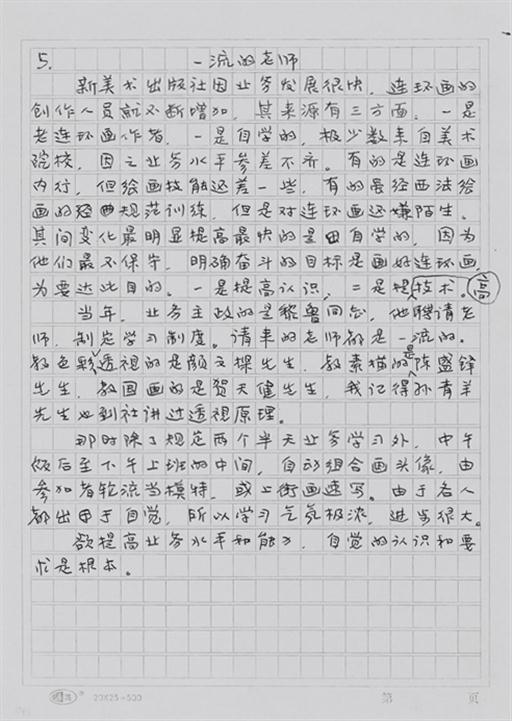 5. 一流的老师
新美术出版社因业务发展很快，连环画的
创作人员就不断增加，其来源有三方面，一是
老连环画作者，一是自学的，极少数来自美术
院校，因之业务水平参差不齐。有的是连环画
内行，但绘画技能还差一些，有的虽经西法绘
画的经典规范训练，但是对连环画还嫌陌生。
其间变化最明显提高最快的是田自学的，因为
他们最不保守，明确奋斗的目标是画好连环画
为要达此目的。一是提高认识，二是提技术。高
当年，业务主政的是黎鲁同志，他聘请老
师，制定学习制度。请来的老师都是一流的。
教色彩透视的是颜文樑先生，教素描的是陈盛铎
先生，教国画的是贺天健先生，我记得孙青羊
先生也到社讲过透视原理。
那时除了规定两个半天业务学习外，中午
饭后至下午上班的中间，自动组合画头像，由
参加者轮流当模特，或上街画速写。由于各人
都出于自觉，所以学习气氛极浓，进步很大。
欲提高业务水平和能力，自觉的认识和要
求是根本。
20X25=500
第 页